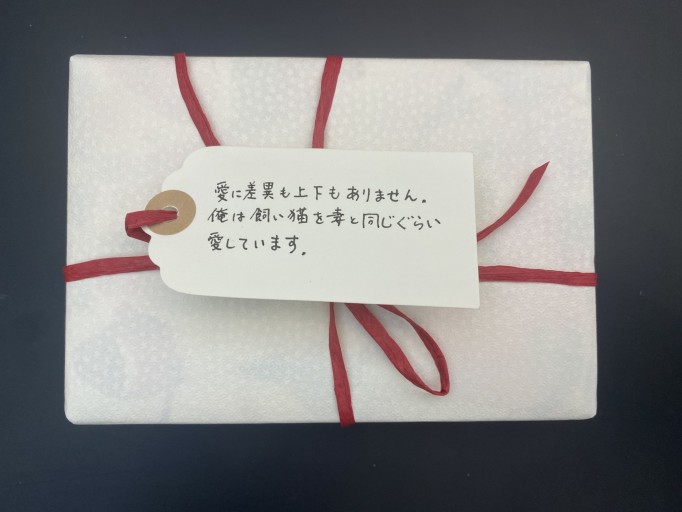 愛に差異も上下もありません。
俺は飼い猫を妻と同じぐらい
愛しています。